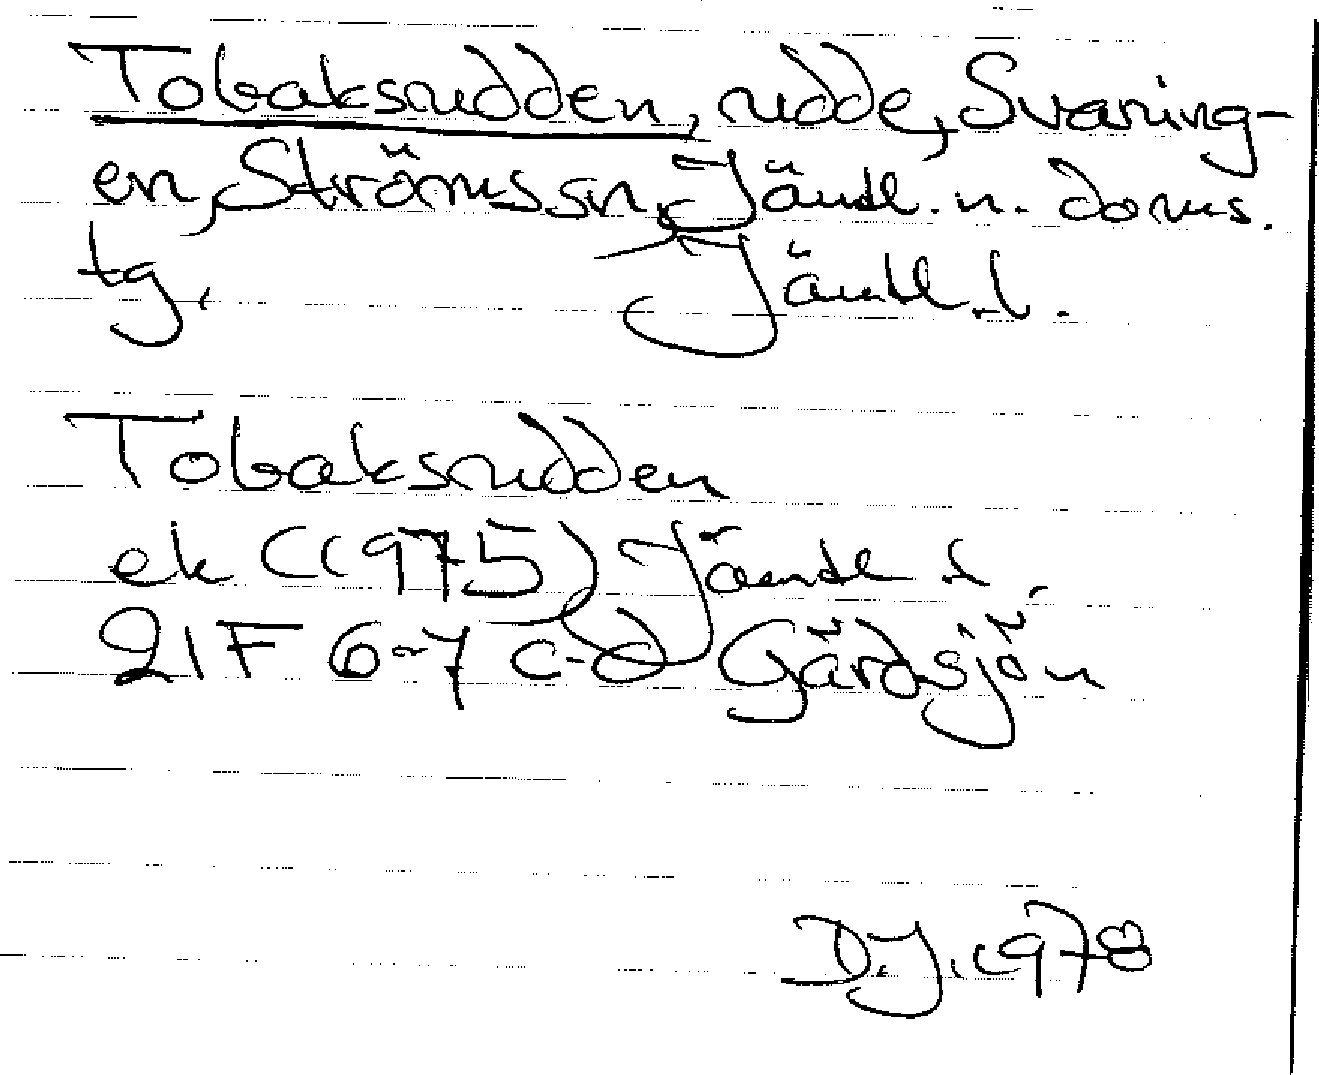 Tobaksudden, udde, Svaning-
en, Ströms sn, Jämtl. n. doms.
tg. Jämtl. l.
Tobaksudden
ek (1975) Jämtl l.
21F 6-7 c-d Gårdsjön
D.J. 1978